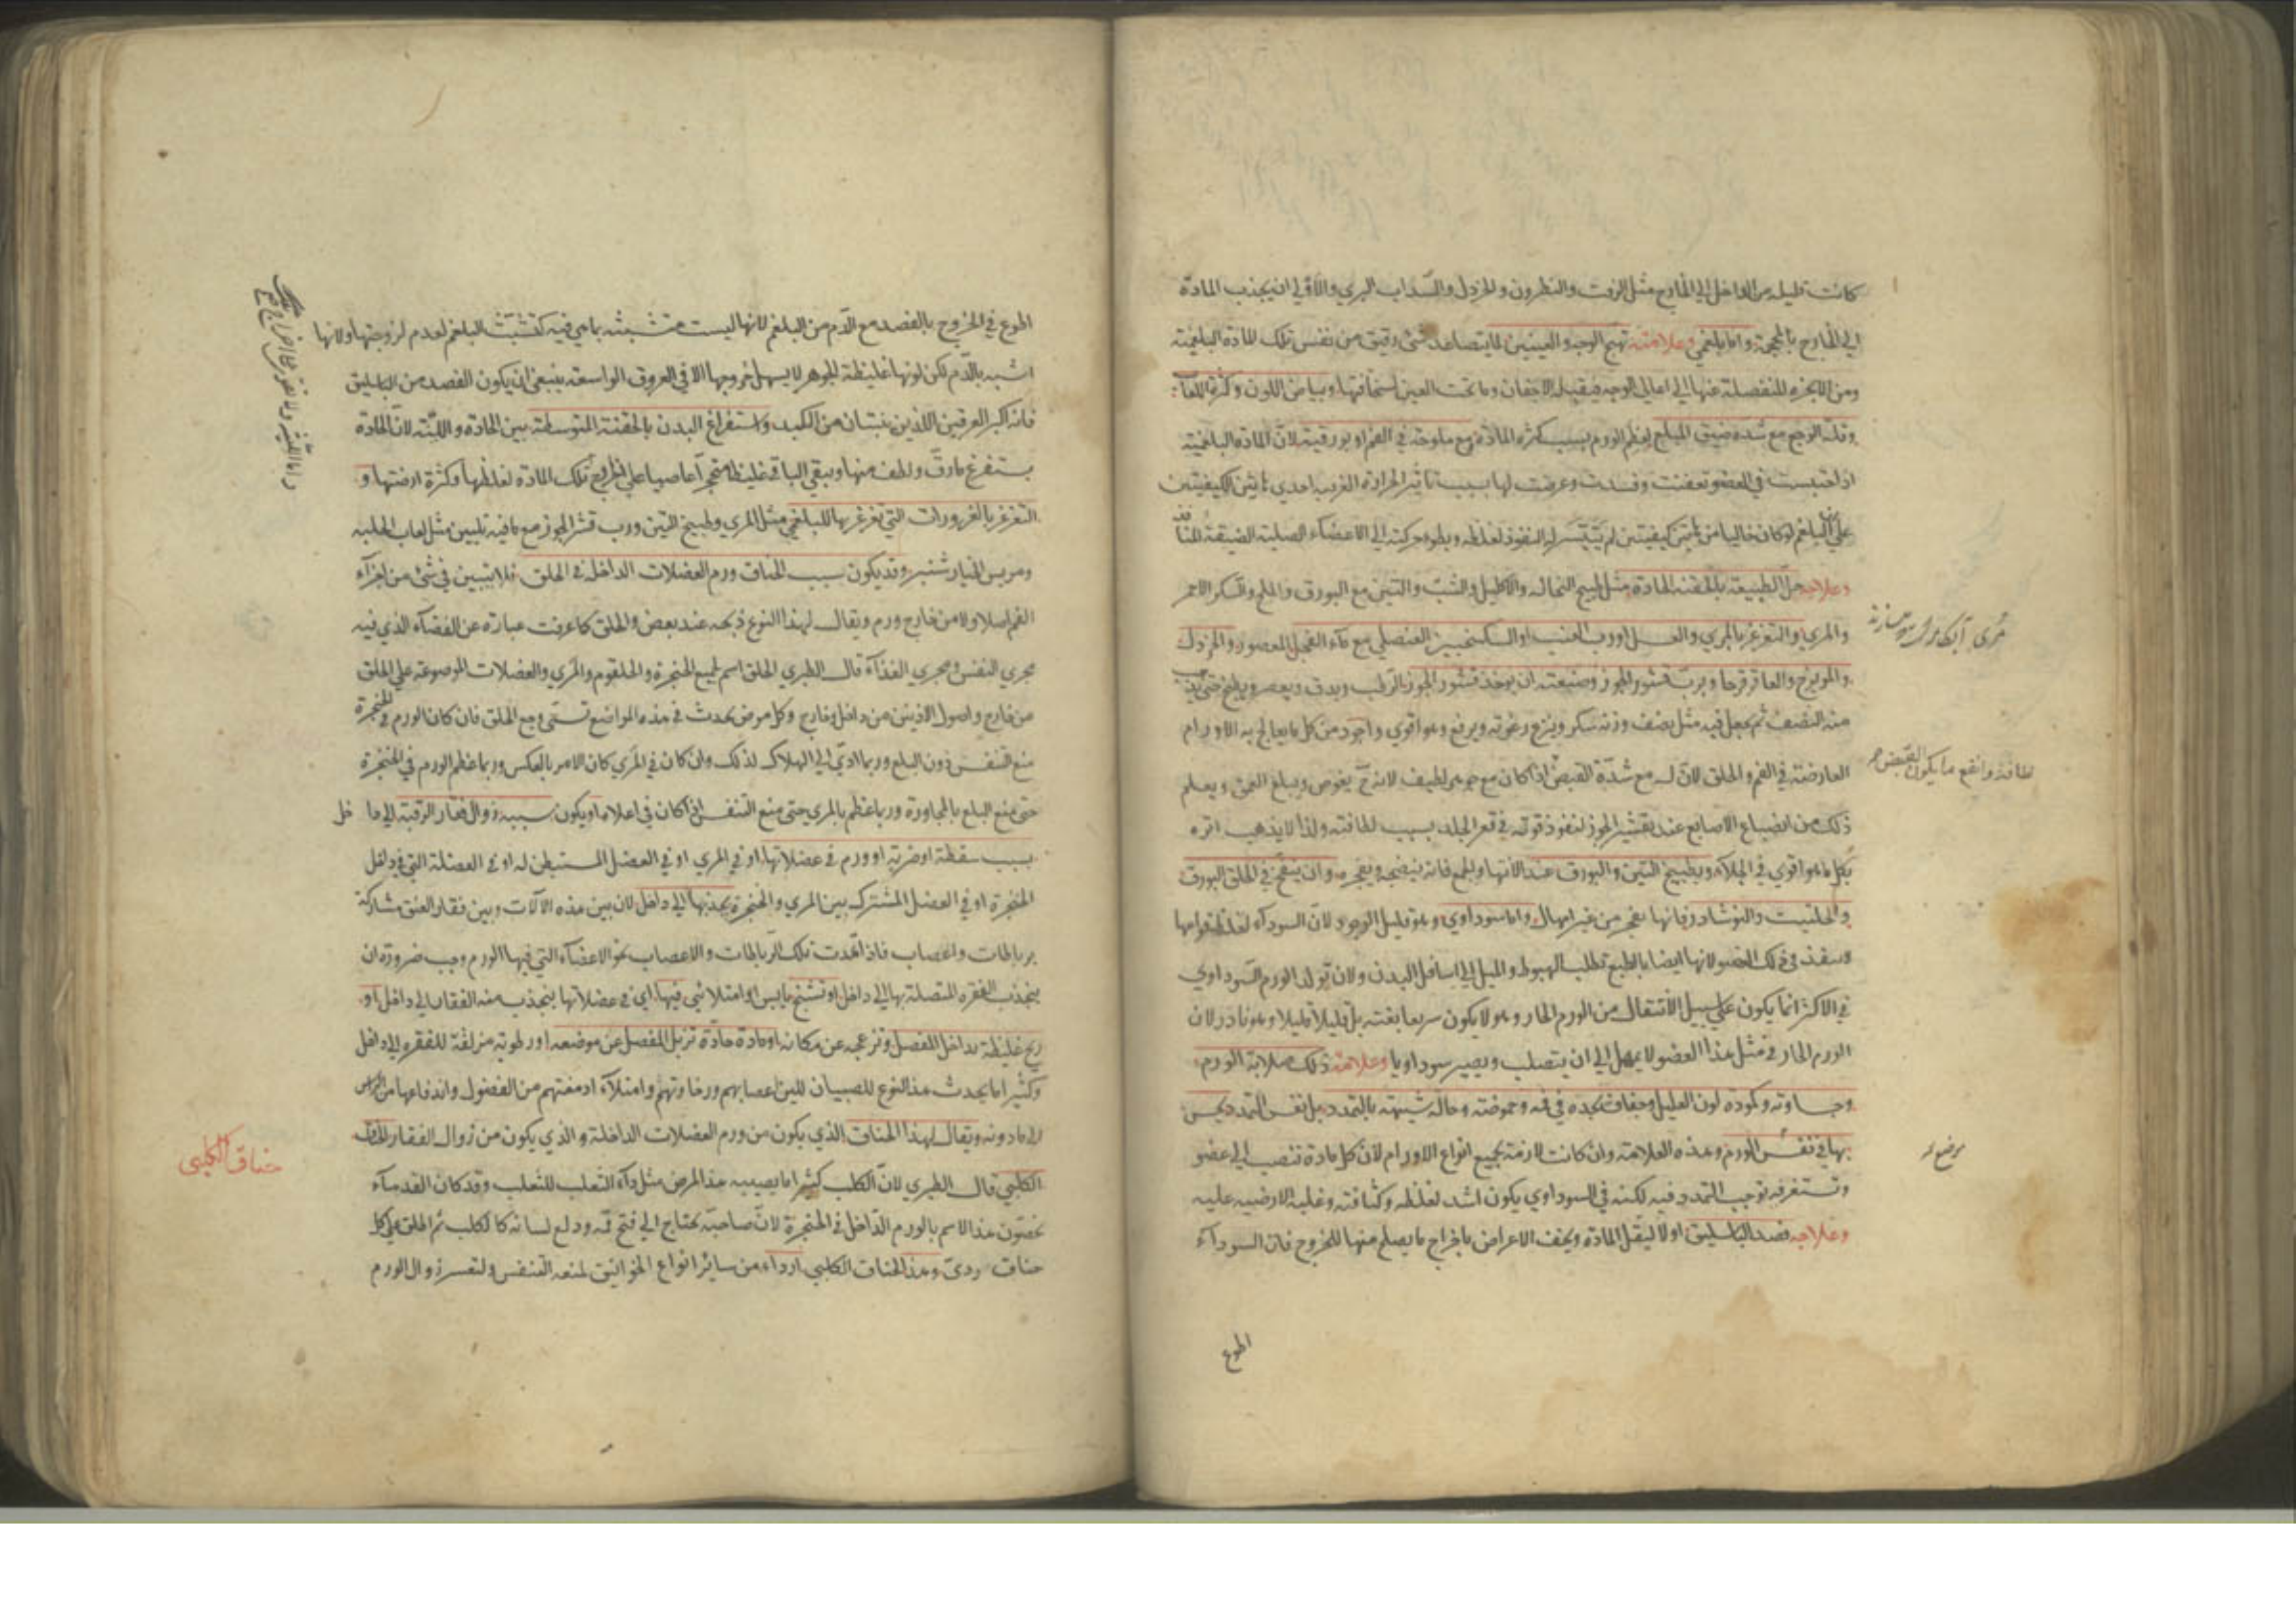 كانت قليله من الداخل الي الخارج مثل الزفت والنطرون والخردل والسداب البري والاقرب ان يجذب المادة
الي الخارج بالمحجمة واما بلغمي وعلامته تهيج الوجه والعينين لما يتصاعد شئ رقيق من نفس تلك المادة البلغمية
ومن الابخره المنفصلة عنها الي اعالي الوجه فيقبله الاجفان وما تحت العين لسخافتها وبياض اللون وكثرة اللعاب
وقلة الوجع مع شده ضيق المبلع لعظم الورم بسبب كثره المادة مع ملوحة في الفم او بورقية لان المادة البلغمية
اذا احتبست في العضو تعفنت وفسدت وعرضت لها بسبب تاثير الحرارة الغريبه احدي هاتين الكيفيتين
علي ان البلغم لو كان خاليا من هاتين الكيفيتين لم يتيسر له النفوذ لغلظه وبطوء حركته الي الاعضاء الصلبة الضيقة المنافذ
وعلاجه حل الطبيعة بالحقنه الحادة مثل طبيخ النخاله والاكليل والشبت والتين مع البورق والملح والسكر الاحمر
والمري والتغرغر بالمري والعسل او رب العنب او السكنجبين العنصلي مع ماء الفجل المعصور والخردل
والمويزج والعاقرقرحا وبرب قشور الجوز وصنعته ان يوخذ قشور الجوز الرطب ويدق ويعصر ويطبخ حتى يذهب
منه النصف ثم يجعل فيه مثل نصف وزنه سكر وينزع رغوته ويرفع وهو اقوي واجود من كل ما يعالج به الاورام
العارضة في الفم والحلق لان له مع شدة القبض اذا كان مع جوهر لطيف لانه ح يغوص ويبلغ العمق ويعلم
ذلك من انصباغ الاصابع عند تقشير الجوز لنفوذ قوته في قعر الجلد بسبب لطافته ولذا لا يذهب اثره
بكل ما هو اقوي في الجلاء وبطبيخ التين والبورق عند الانتها والجمع فانه ينضجه ويفجره وان ينفخ في الحلق البورق
والحلتيت والنوشادر فانها يفجر من غير امهال واما سوداوي وهو قليل الوجود لان السوداء لغلظ قوامها
وينفذ في ذلك العضو لانها ايضا بالطبع تطلب الهبوط والميل الي اسافل البدن ولان تولد الورم السوداوي
في الاكثر انما يكون علي سبيل الانتقال من الورم الحار وهو لا يكون سريعا بغتة بل قليلا قليلا وهو نادر لان
الورم الحار في مثل هذا العضو لا يمهل الي ان يتصلب ويصير سوداويا وعلامته ذلك صلابة الورم
وجساوته وكمودة لون العليل وجفاف يجده في فمه وحموضته وحالة شبيهة بالتمدد بل نفس التمدد يحس
بها في نفس الورم وهذه العلامة وان كانت لازمة لجميع انواع الاورام لان كل مادة تنصب الي عضو
وتستغرقه توجب التمدد فيه لكنه في السوداوي يكون اشد لغلظه وكثافته وغلبة الارضيه عليه
وعلاجه فصد الباسليق اولا ليقل المادة ويخف الاعراض باخراج ما يصلح منها للخروج فان السوداء
اطوع
مري آبكامه
لطافة وانفع ما يكون القبض
موضع
اطوع في الخروج بالفصد مع الدم من البلغم لانها ليست متشبثه بما هي فيه كتشبث البلغم لعدم لزوجتها ولانها
اشبه بالدم لكن لونها غليظة الجوهر لا يسهل خروجها الا في العروق الواسعة ينبغي ان يكون الفصد من الباسليق
فانه اكبر العرقين اللذين ينبتان من الكبد واستفراغ البدن بالحقنة المتوسطة بين الحادة واللينة لان الحادة
يستفرغ ما رق ولطف منها ويبقي الباقي غليظا متحجرا عاصيا علي الخروج تلك المادة لغلظها وكثرة ارضيتها و
التغرغر بالغرورات التي تغرغر بها للبلغمي مثل المري وطبيخ التين ورب قشر الجوز مع ما فيه تليين مثل لعاب الحلبه
ومريس الخيار شنبر وقد يكون سبب الخناق ورم العضلات الداخلة في الحلق فلا يتبين في شئ من اجزاء
الفم اصلا ولا من خارج ورم ويقال لهذا النوع ذبحه عند بعض والحلق كما عرفت عبارة عن الفضاء الذي فيه
مجري النفس ومجري الغذاء قال الطبري الحلق اسم لجميع الحنجرة والحلقوم والمري والعضلات الموضوعه علي الحلق
من خارج واصول الاذنين من داخل وخارج وكل مرض يحدث في هذه المواضع تسمي وجع الحلق فان كان الورم في الحنجرة
منع التنفس دون البلع وربما ادي الي الهلاك لذلك وان كان في المري كان الامر بالعكس وربما عظم الورم في الحنجرة
حتى منع البلع بالمجاورة وربما عظم بالمري حتى منع التنفس اذا كان في اعلاه او يكون سببه زوال فقار الرقبة الي داخل
بسبب سقطة او ضربة او ورم في عضلاتها او في المري او في العضل المستبطن له او في العضلة التي في داخل
الحنجرة او في العضل المشترك بين المري والحنجرة يجذبها الي داخل لان بين هذه الآلات وبين فقار العنق مشاركة
برباطات واعصاب فاذا تمددت تلك الرباطات والاعصاب نحو الاعضاء التي فيها الورم وجب ضرورة ان
ينجذب الفقره المتصلة بها الي داخل او تشنج يابس او امتلائي فيها اي في عضلاتها ينجذب منه الفقار الي داخل او
ريح غليظة يداخل المفصل وتزعجه عن مكانه او مادة حادة تزيل المفصل عن موضعه او رطوبة مزلقة للفقره الي داخل
وكثيرا ما يحدث هذا النوع للصبيان للين اعصابهم ورخاوتهم وامتلاء ادمغتهم من الفضول واندفاعها من الراس
الي ما دونه ويقال لهذا الخناق الذي يكون من ورم العضلات الداخلة والذي يكون من زوال الفقار
الكلبي قال الطبري لان الكلب كثيرا ما يصيبه هذا المرض مثل داء الثعلب للثعلب وقد كان القدماء
يخصون هذا الاسم بالورم الداخل في الحنجرة لان صاحبه يحتاج الي فتح فمه ودلع لسانه كالكلب ثم اطلق علي كل
خناق ردي وهذا الخناق الكلبي ارداء من سائر انواع الخوانيق لمنعه التنفس ولتعسر زوال الورم
خناق الكلبي